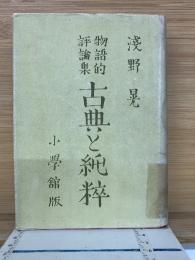 淺野晃
物語的
評論集
古典と純粋
小學館版